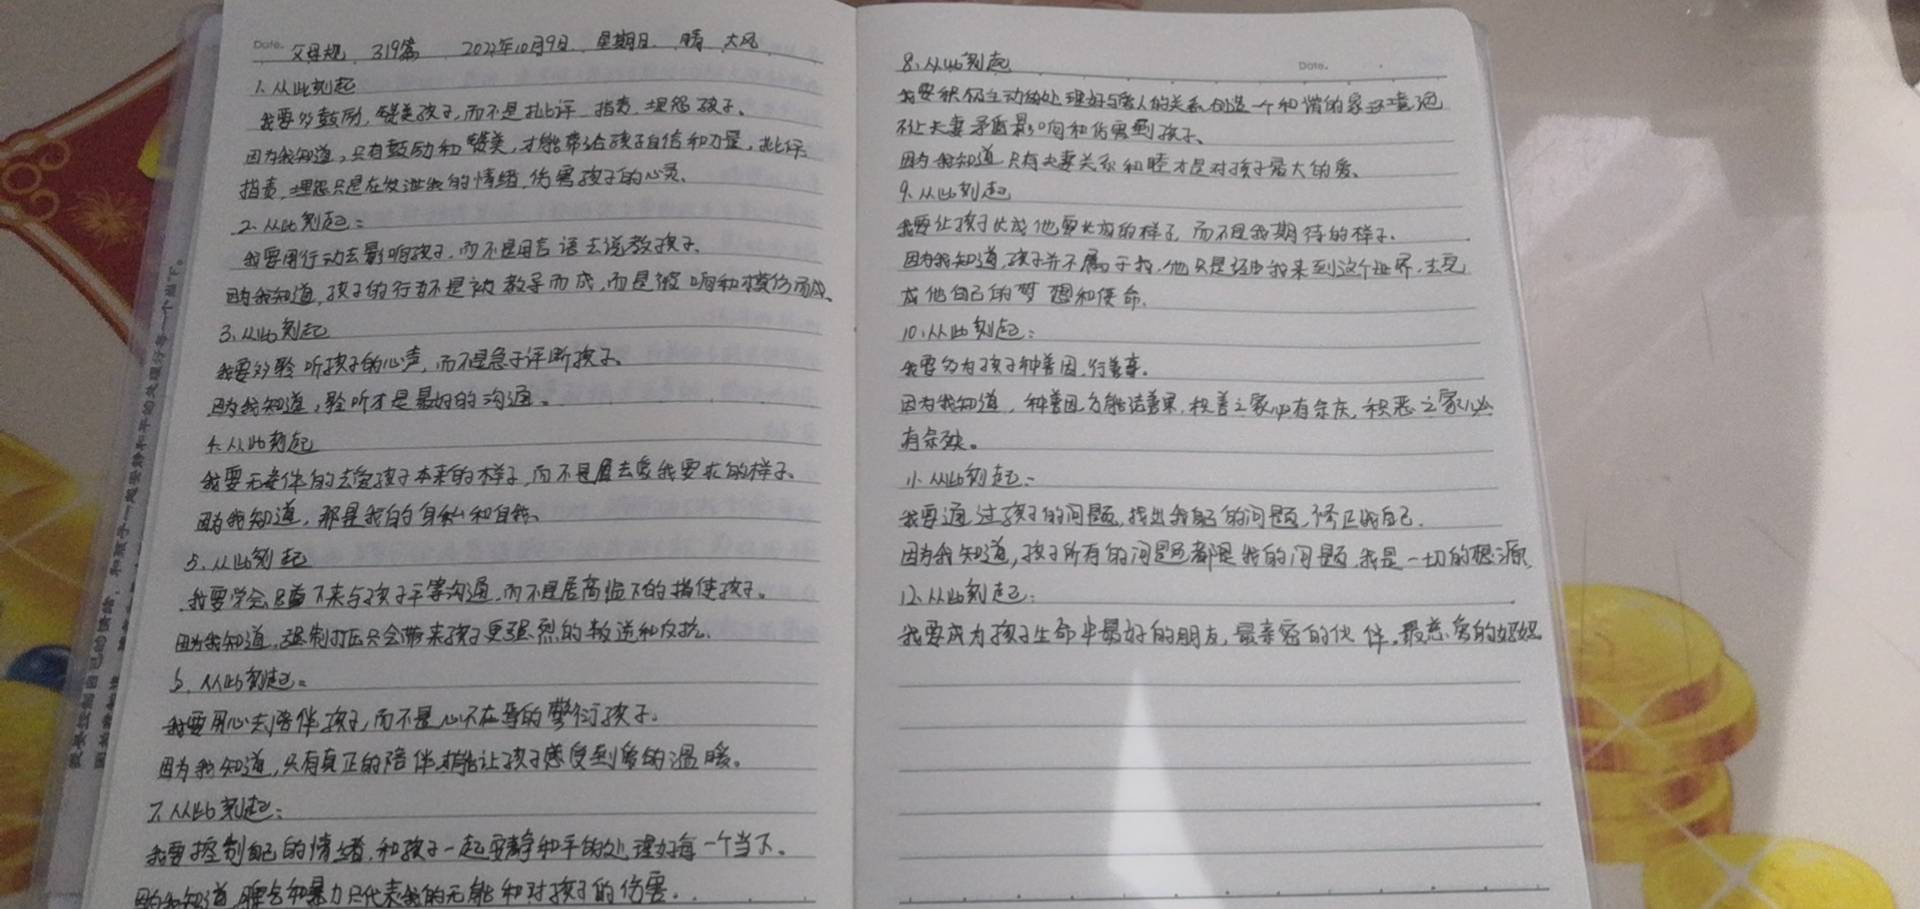 Date. 父母规 319篇 2022年10月9日 星期日 晴 大风
1、从此刻起
我要多鼓励,赞美孩子,而不是批评、指责、埋怨孩子、
因为我知道,只有鼓励和赞美,才能带给孩子自信和力量,批评、
指责、埋怨只是在发泄我的情绪,伤害孩子的心灵、
2、从此刻起:
我要用行动去影响孩子,而不是用言语去说教孩子、
因为我知道,孩子的行为不是被教导而成,而是被 响和模仿而成、
3、从此刻起
我要多聆听孩子的心声,而不是急于评断孩子、
因为我知道,聆听才是最好的沟通。
4、从此刻起
我要无条件的去爱孩子本来的样子,而不是去爱我要求的样子、
因为我知道,那是我的自私和自我、
5、从此刻起
我要学会蹲下来与孩子平等沟通,而不是居高临下的指使孩子。
因为我知道,强制打压只会带来孩子更强烈的叛逆和反抗、
6、从此刻起:
我要用心去陪伴孩子,而不是心不在焉的敷衍孩子。
因为我知道,只有真正的陪伴,才能让孩子感受到爱的温暖。
7、从此刻起:
我要控制自己的情绪,和孩子一起安静和平的处理好每一个当下、
因为我知道, 和暴力只代表我的无能和对孩子的伤害。
8、从此刻起
Date.
我要积极主动的处理好与爱人的关系,创造一个和谐的家庭环境,绝
不让夫妻矛盾影响和伤害到孩子、
因为我知道,只有夫妻关系和睦才是对孩子最大的爱、
9、从此刻起
我要让孩子长成他要长成的样子,而不是我期待的样子、
因为我知道,孩子并不属于我,他只是经由我来到这个世界,去完
成他自己的梦想和使命、
10、从此刻起:
我要多为孩子种善因,行善事。
因为我知道,种善因方能结善果,积善之家必有余庆,积恶之家必
有余殃。
11、从此刻起:
我要通过孩子的问题,找出我自己的问题,修正我自己、
因为我知道,孩子所有的问题都是我的问题,我是一切的根源、
12、从此刻起:
我要成为孩子生命中最好的朋友,最亲密的伙伴,最慈爱的妈妈